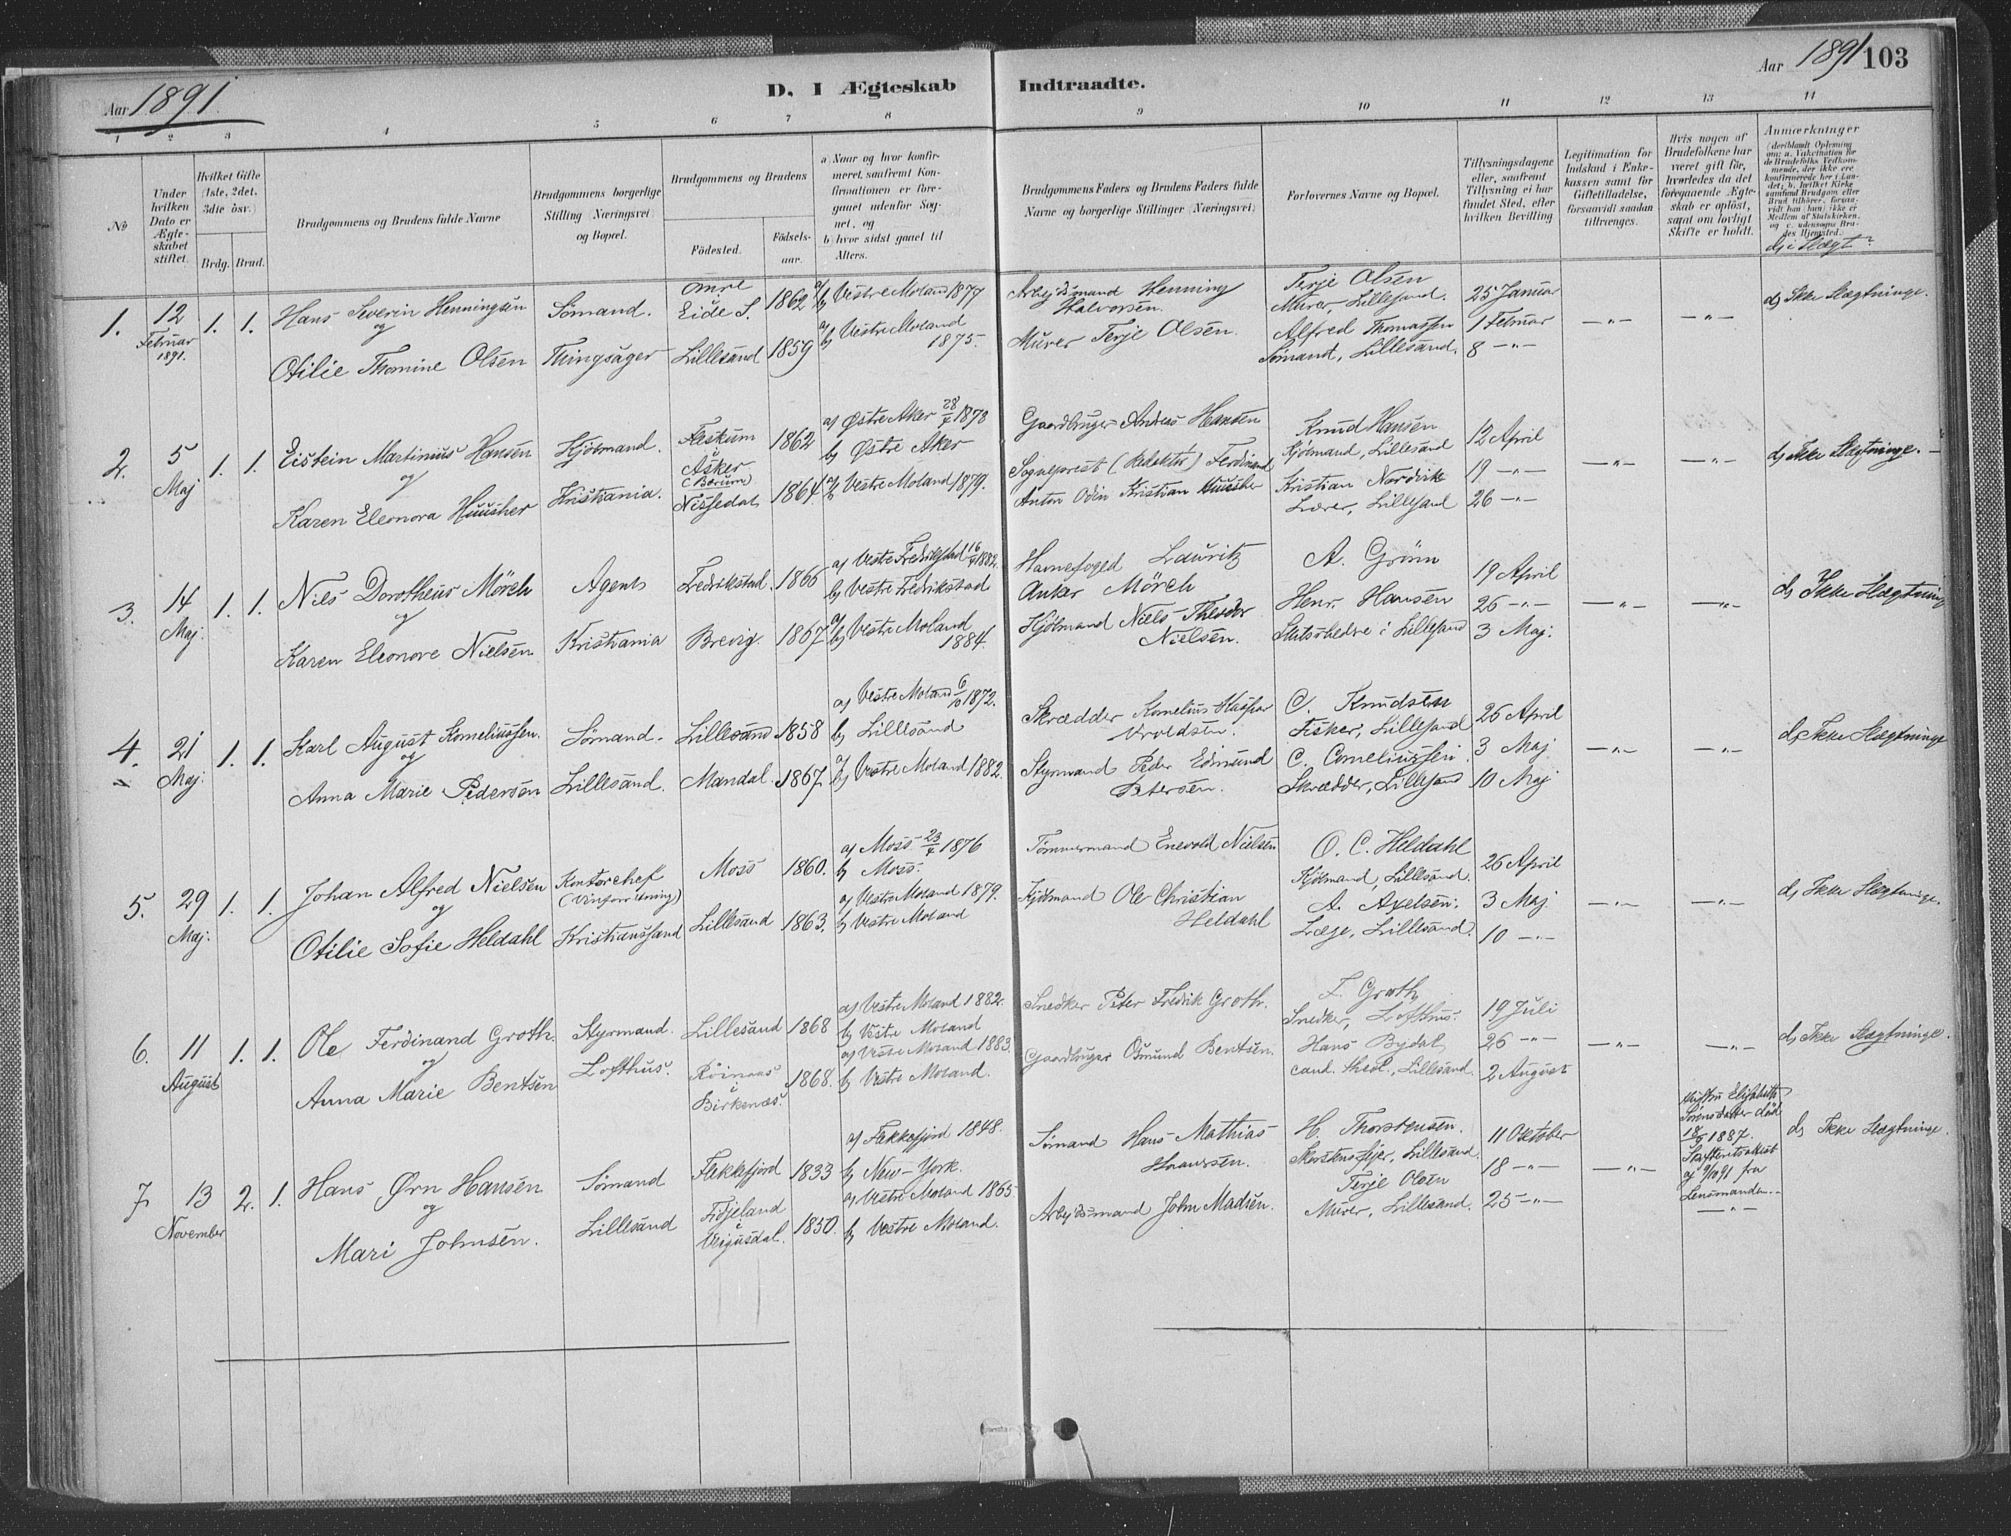 Aar 1891.
D. I Ægteskab Indtraadte.
Aar 1891 103
1 2 3 4 5 6 7 8 9 10 11 12 13 14
No
Under hvilken Dato er Ægteskabet stiftet
Hvilket Gifte (1ste, 2det, 3die osv.)
Brdg. Brud.
Brudgommens og Brudens fulde Navne
Brudgommens borgerlige Stilling (Næringsvei) og Bopæl.
Brudgommens og Brudens
Födested.
Födselsaar.
a Naar og hvor konfirmeret, saafremt Konfirmationen er foregaaet udenfor Sognet, og
b hvor sidst gaaet til Alters.
Brudgommens Faders og Brudens Faders fulde Navne og borgerlige Stillinger (Næringsvei)
Forlovernes Navne og Bopæl.
Tillysningsdagene eller, saafremt Tillysning ei har fundet Sted, efter hvilken Bevilling
Legitimation for Indskud i Enkekassen samt for Giftetilladelse, forsaavidt saadan tiltrænges.
Hvis nogen af Brudefolkene har været gift før, hvorledes da det foregaaende Ægteskab er opløst, samt om lovligt Skifte er holdt.
Anmærkninger
d, i Slægt?
1. 12 Februar 1891. 1. 1.
Hans Severin Henningsen
og
Otilie Thomine Olsen
Sömand.
Thingsager
Omre i Eide S. 1862
Lillesand 1859
a/b Vestre Moland 1877
a/b Vestre Moland 1875.
Arbeidsmand Henning Halvorsen.
Murer Terje Olsen.
Terje Olsen
Murer, Lillesand.
Alfred Thomassen
Sömand, Lillesand.
25 Januar
1 Februar
8 -"-
-"- -"-
d, Ikke Slægtninge.
2. 5 Maj. 1. 1.
Eistein Martinus Hansen
og
Karen Eleonora Huusher
Kjöbmand.
Kristiania.
Asker (Bærum) 1862
Nissedal 1864
a, Østre Aker 1878
b, Østre Aker
a/b Vestre Moland 1879.
Gaardbruger Andreas Hansen
Sognepræst (Redaktör) Ferdinand
Anton Odin Kristian Huusher
Knud Hansen
Kjöbmand, Lillesand
Kristian Nordvik
Lærer, Lillesand
12 April
19 -"-
26 -"-
-"- -"-
d, Ikke Slægtninge.
3. 14 Maj. 1. 1.
Niels Dorotheus Mörch
og
Karen Eleonore Nielsen
Agent
Kristiania
Fredrikstad. 1866
Brevig. 1867
a, Vestre Fredrikstad 1882.
b, Vestre Fredrikstad
a/b Vestre Moland 1884.
Havnefoged Lauritz
Anker Mörch
Kjöbmand Niels Theodor
Nielsen.
A. Grönn
Henr. Hansen
i Lillesand
19 April
26 -"-
3 Maj.
-"- -"-
d, Ikke Slægtning
4. 21 Maj. 1. 1.
Karl August Korneliussen.
og
Anna Marie Pedersen
Sömand.
Lillesand.
Lillesand 1858
Mandal. 1867
a, Vestre Moland 6/10 1872.
b, Lillesand
a/b Vestre Moland 1882.
Skrædder Kornelius Kaspar
Styrmand Peder Edmund
Petersen.
C. Knudsen
Fisker, Lillesand
C. Corneliussen.
Skrædder, Lillesand
26 April
3 Maj
10 Maj
-"- -"-
d, Ikke Slægtninge
5. 29 Maj. 1. 1.
Johan Alfred Nielsen
og
Otilie Sofie Heldahl
Kontorchef
(Vinforretning)
Kristianssand
Moss 1860.
Lillesand 1863.
a, Moss 23/4 1876
b, Moss.
a, Vestre Moland 1879.
b, Vestre Moland
Tömmermand Enevold Nielsen
Kjöbmand Ole Christian
Heldahl
O. C. Heldahl
Kjöbmand, Lillesand.
A. Axelsen.
Læge, Lillesand.
26 April
3 Maj
10 -"-
-"- -"-
d, Ikke Slægtninge.
6. 11 August 1. 1.
Ole Ferdinand Groth.
og
Anna Marie Bentsen
Styrmand.
Lofthus.
Lillesand 1868
Röinaas i Birkenæs. 1868.
a, Vestre Moland 1882.
b, Vestre Moland
a, Vestre Moland 1883.
b, Vestre Moland.
Snedker Peter Fredik Groth.
Gaardbruger Osmund Bentsen.
F. Groth
Snedker, Lofthus.
Hans Bydal
cand. theol., Lillesand.
19 Juli
26 -"-
2 August
-"- -"-
d, Ikke Slægtninge.
7. 13 November 2. 1.
Hans Ørn Hansen
og
Mari Johnsen.
Sömand
Lillesand
Flekkefjord 1833
Fidjeland i Vegusdal. 1850.
a, Flekkefjord 1848.
b, New-York.
a, Vestre Moland 1865.
b, Vestre Moland.
Sömand Hans Mathias
Arbeidsmand John Madsen.
H. Thorstensen.
Skorstensfejer, Lillesand.
Terje Olsen
Murer, Lillesand.
11 Oktober
18 -"-
25 -"-
-"-
Elisabeth Sörensdatter död 1887. Skifteritsattest af 9/10 91 fra Lensmanden.
-"-
d, Ikke Slægtninge.